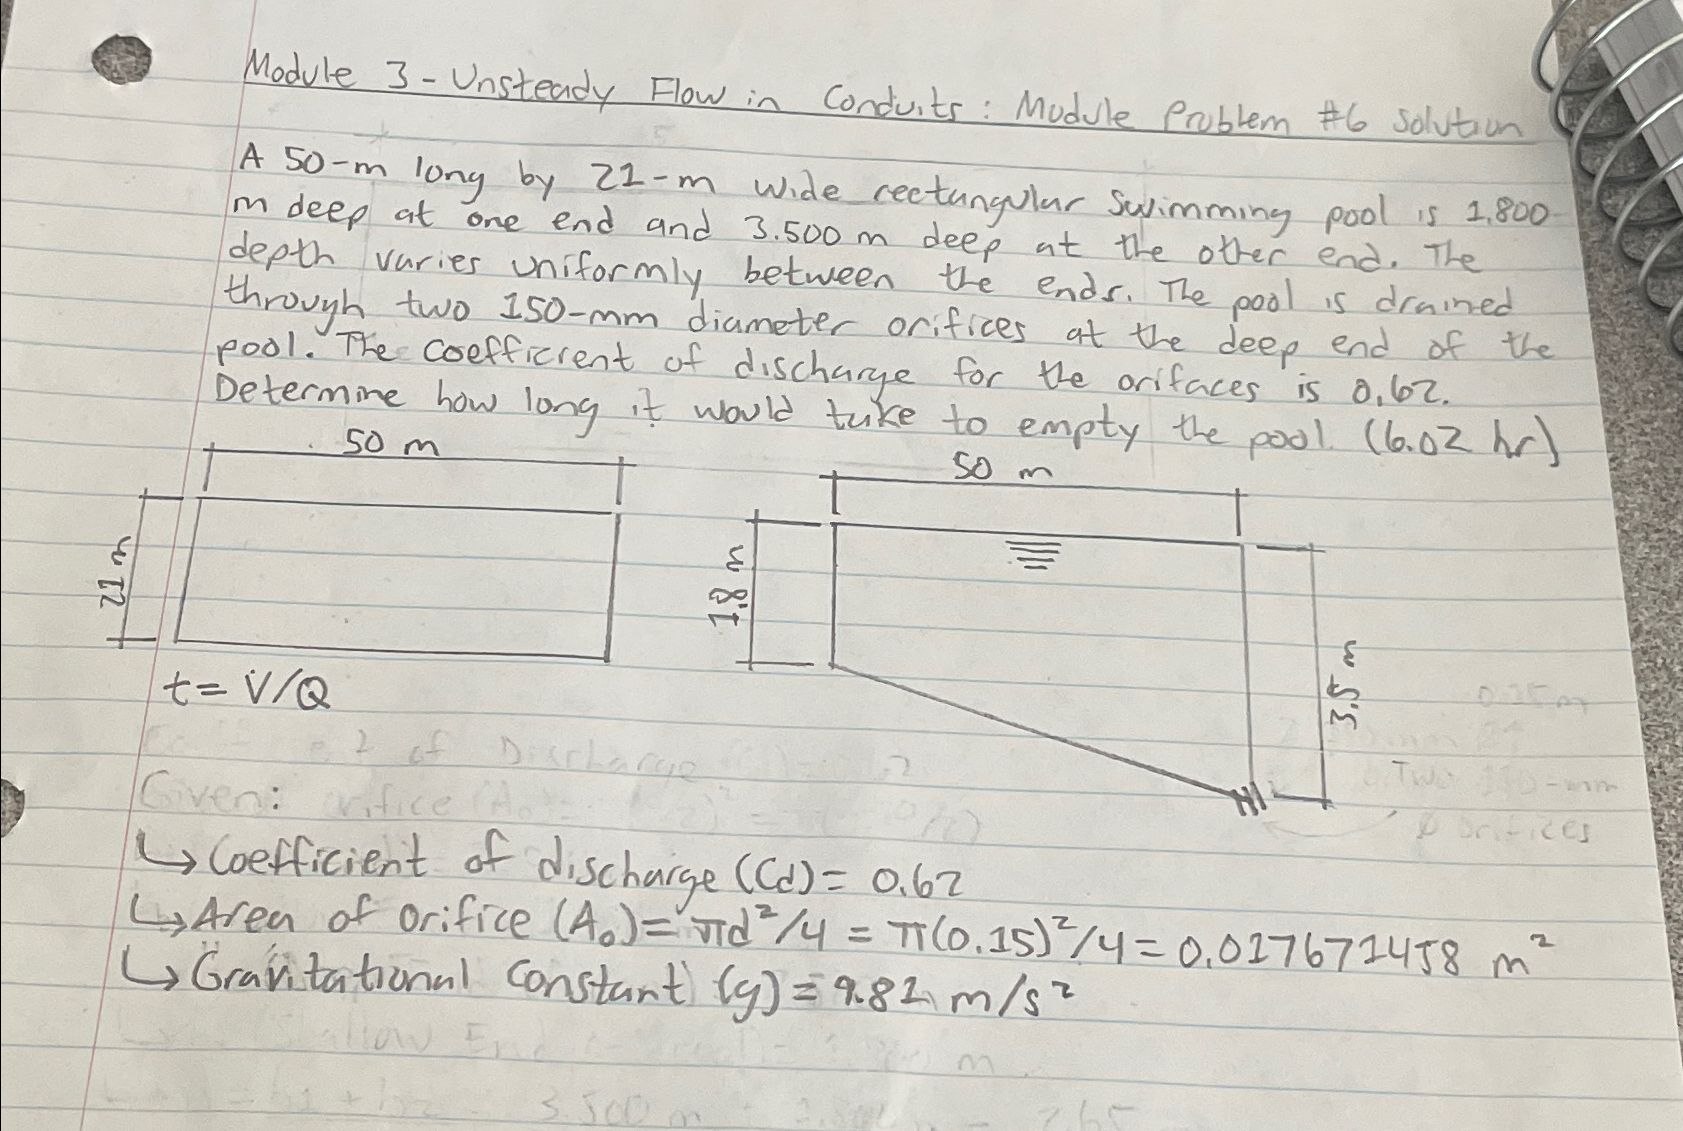 Module 3 - Unsteady Flow in Conduits: Module Problem #6 Solution
A 50-m long by 21-m wide rectangular swimming pool is 1.800
m deep at one end and 3.500 m deep at the other end. The
depth varies uniformly between the ends. The pool is drained
through two 150-mm diameter orifices at the deep end of the
pool. The coefficient of discharge for the orifaces is 0.62.
Determine how long it would take to empty the pool. (6.02 hr)
50 m
50 m
21 m
1.8 m
3.5 m
t = V/Q
0.15 m
Two 150-mm
Ø orifices
of Discharge
Given: orifice (A₀)
↳ Coefficient of discharge (Cd) = 0.62
↳ Area of orifice (A₀) = πd²/4 = π(0.15)²/4 = 0.017671458 m²
↳ Gravitational constant (g) = 9.81 m/s²
End m
3.500 m 2.65